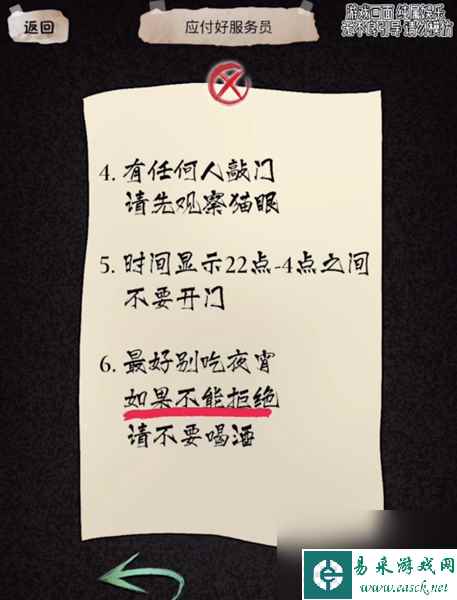 返回
应付好服务员
游戏画面 纯属娱乐
无不良引导 请勿模仿
4. 有任何人敲门
请先观察猫眼
5. 时间显示22点-4点之间
不要开门
6. 最好别吃夜宵
如果不能拒绝
请不要喝酒
易采游戏网
www.easck.net